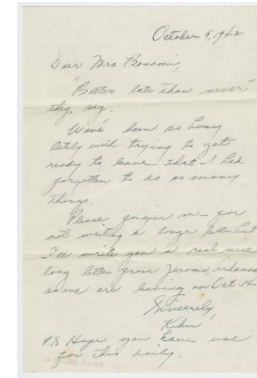 October 9, 1942
Dear Mrs
"Better late than never"
they say.
We've been so busy
lately with trying to get
ready to leave that I had
forgotten to do so many
things.
Please forgive me for
not writing a longer letter but
I'll write you a real nice
long letter from Jerome, Arkansas
as we are leaving on Oct. 14
Sincerely,
P.S. Hope you have use
for this